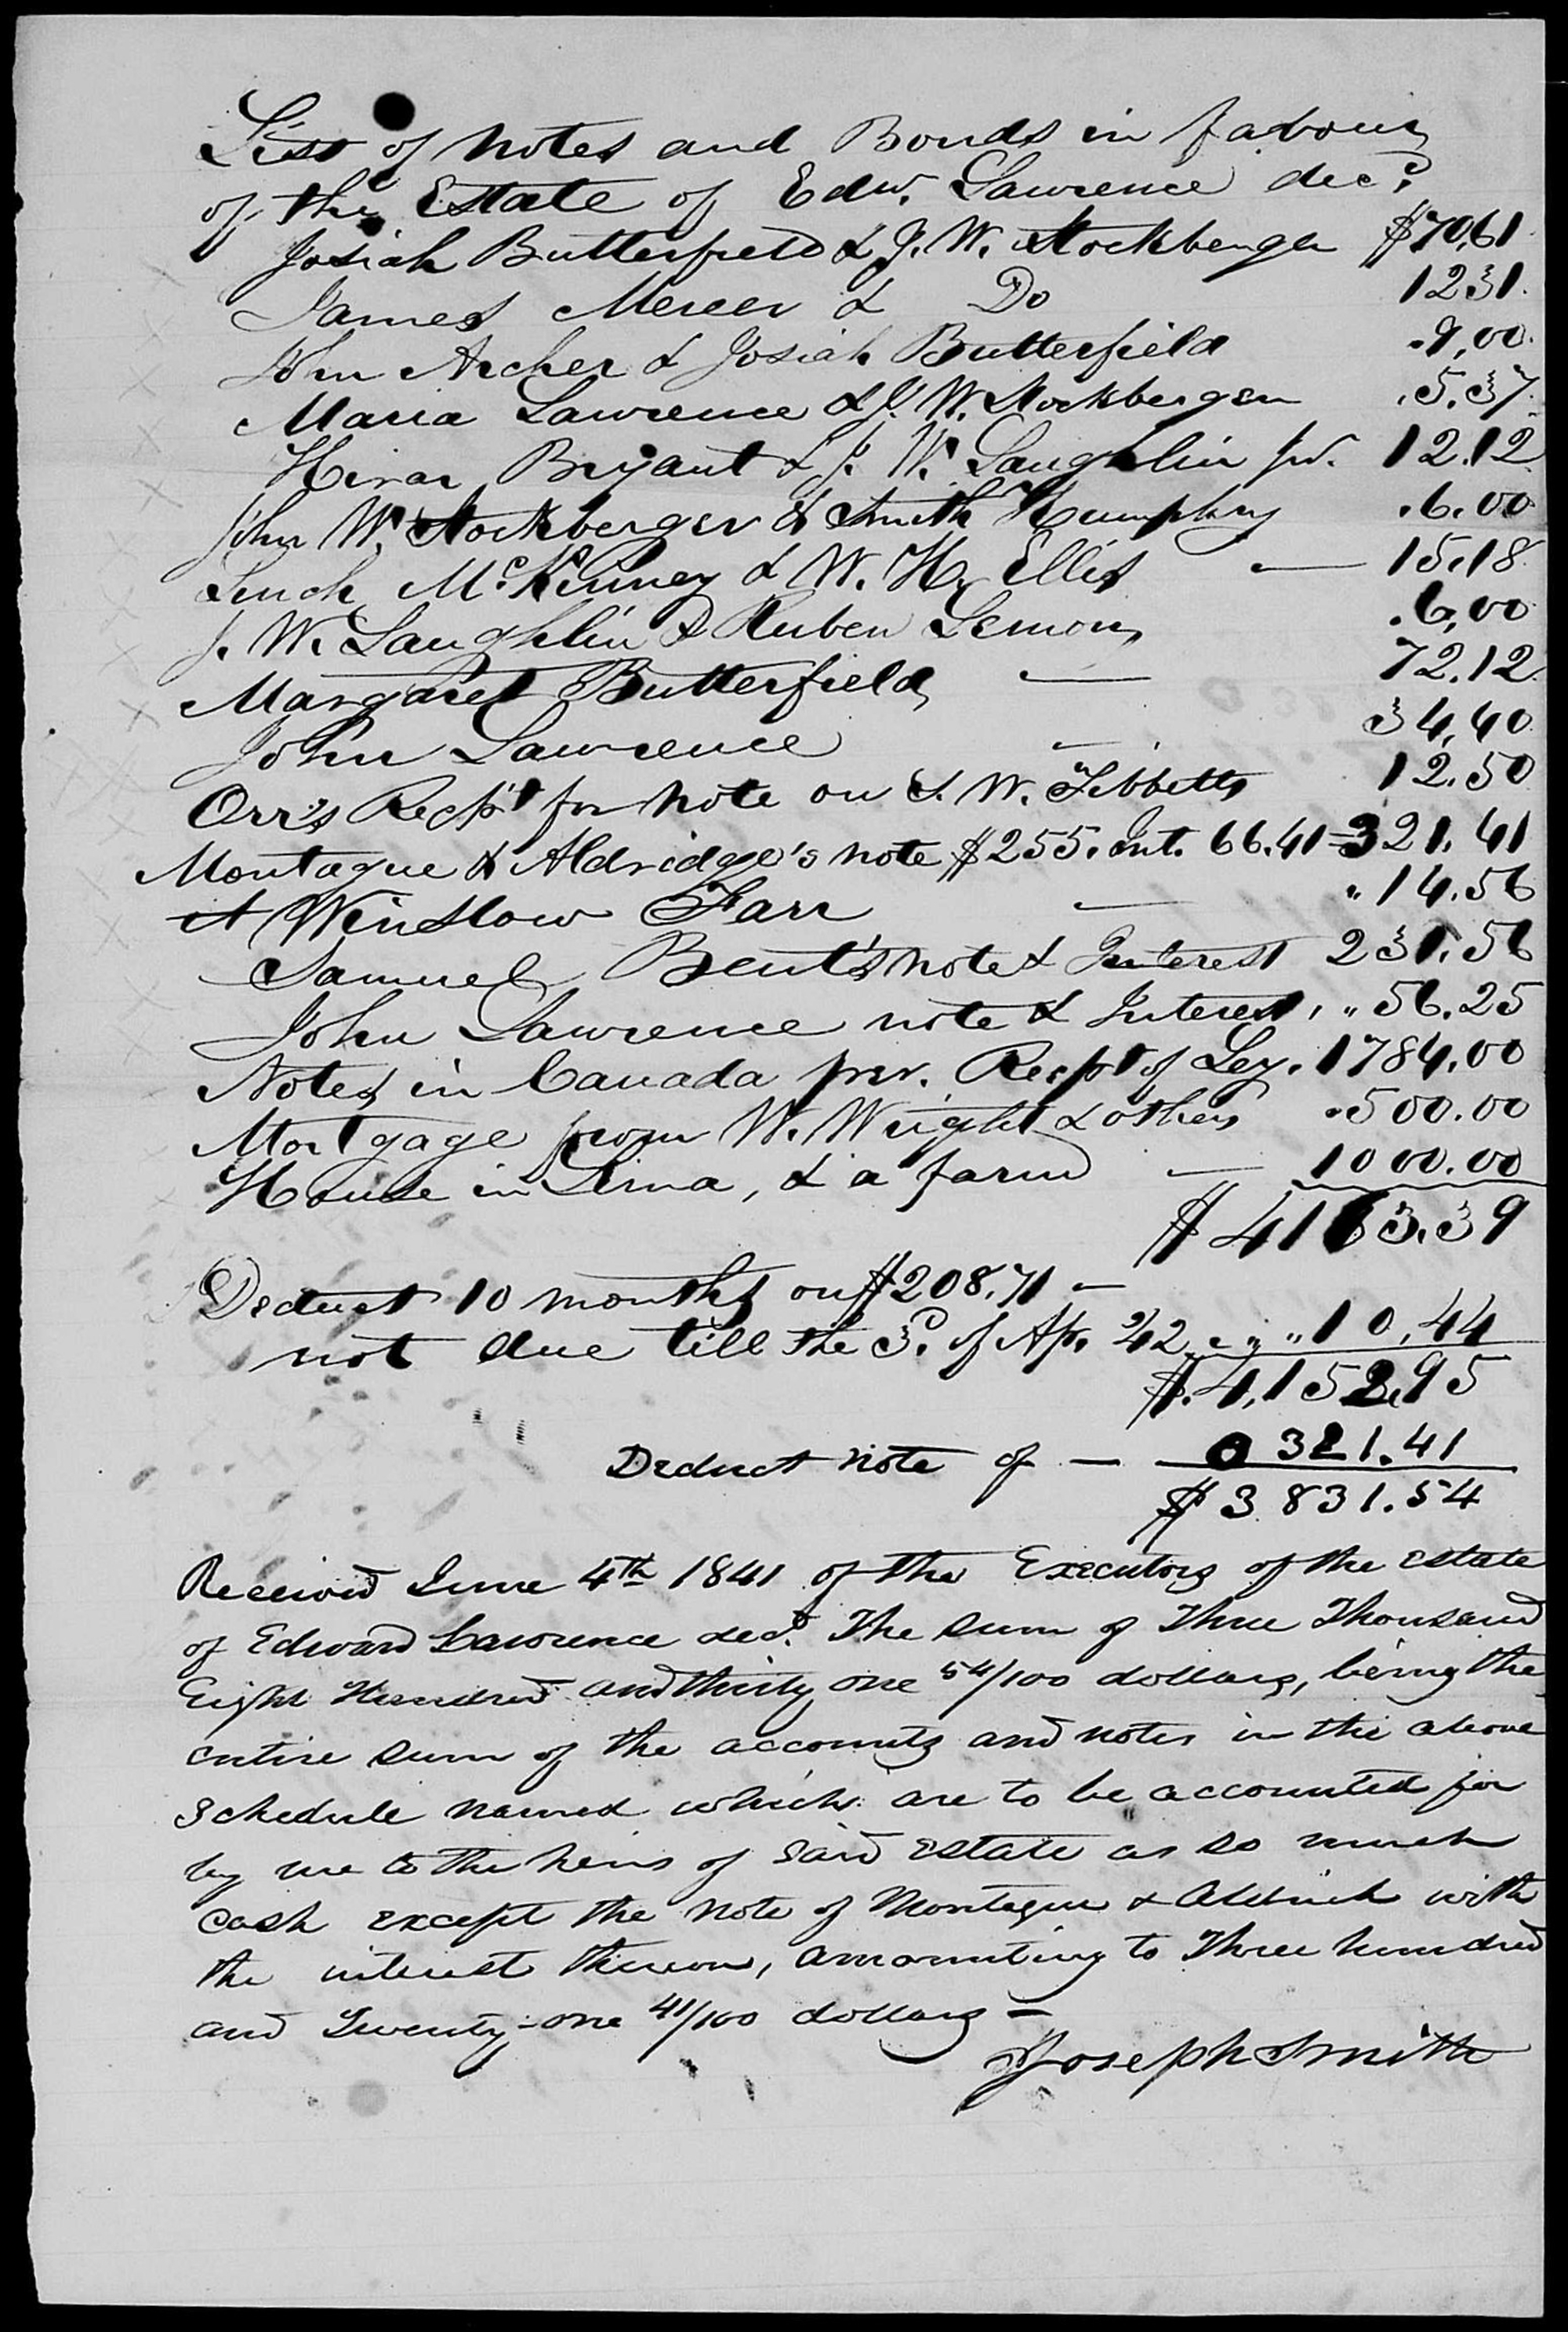 List of Notes and Bonds in favour
of the Estate of Edw. Lawrence decd.
Josiah Butterfield & J. W. Stockberger $70,61
James Mercer & Do 1231.
John Archer & Josiah Butterfield .9,00.
Maria Lawrence & J. W. Stockberger .5.37.
Hiram Bryant & J. W. Laughlin 12.12
John W. Stockberger & Smith Humphry .6.00
McKinney & W. H. Ellis — 15.18
J. W. Laughlin & Ruben Lemon .6,00
Margaret Butterfield — 72.12
John Lawrence — 34,40
Orr's Recpt for note on S. W. Tibbetts 12.50
Montague & Aldridge's note $255. Int. 66.41 – 321.41
Winslow Farr — " 14.56
Samuel Bent's note & Interest 231.56
John Lawrence note & Interest, " 56.25
Notes in Canada per. Recpt of Ley. 1784.00
Mortgage from W. Wright & others .500.00
House in Lima, & a farm — 1000.00
$4163.39
Deduct 10 months on $208.71 –
not due till the 3d. of Ap. 42 " " 10,44
$.4,152.95
Deduct note of — 0 321.41
$3831.54
Received June 4th 1841 of the Executors of the estate
of Edward Lawrence decd. The sum of Three Thousand
Eight Hundred and thirty one 54/100 dollars, being the
entire sum of the accounts and notes in the above
schedule named which are to be accounted for
by me to the heirs of said estate as so much
cash except the note of Montague & Aldrich with
the interest thereon, amounting to Three hundred
and Twenty-one 41/100 dollars –
Joseph Smith